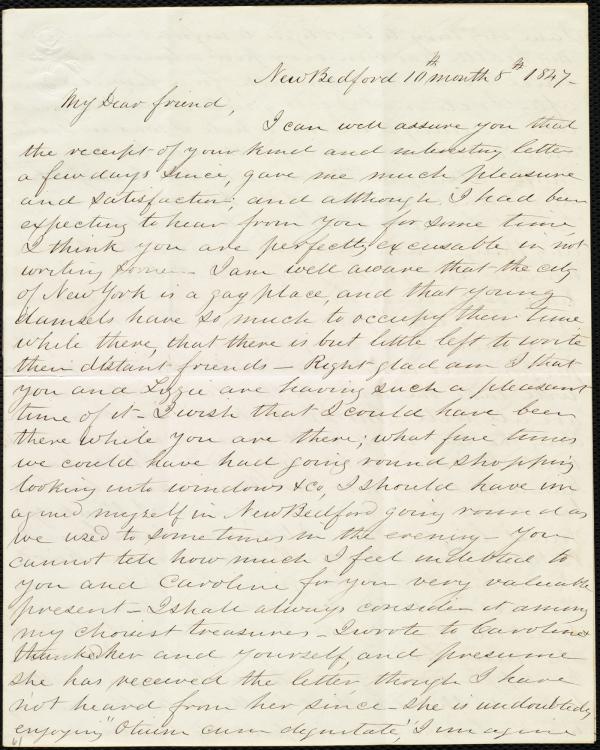 New Bedford 10th month 8th 1847-
My Dear friend,
I can well assure you that
the receipt of your kind and interesting letter
a few days since, gave me much pleasure
and satisfaction; and although I had been
expecting to hear from you for some time,
I think you are perfectly excusable in not
writing sooner- I am well aware that the city
of New York is a gay place, and that young
damsels have so much to occupy their time
while there, that there is but little left to write
their distant friends- Right glad am I that
you and Lizzie are having such a pleasant
time of it- I wish that I could have been
there while you are there; what fine times
we could have had going round shopping
looking into windows &co, I should have im
agined myself in New Bedford going round as
we used to sometimes in the evening- You
cannot tell how much I feel indebted to
you and Caroline for you very valuable
present- I shall always consider it among
my choisest treasures- I wrote to Caroline &
thanked her and yourself, and presume
she has received the letter, though I have
not heard from her since- she is undoubtedly
enjoying "Otium cum dignitate," I imagine
61